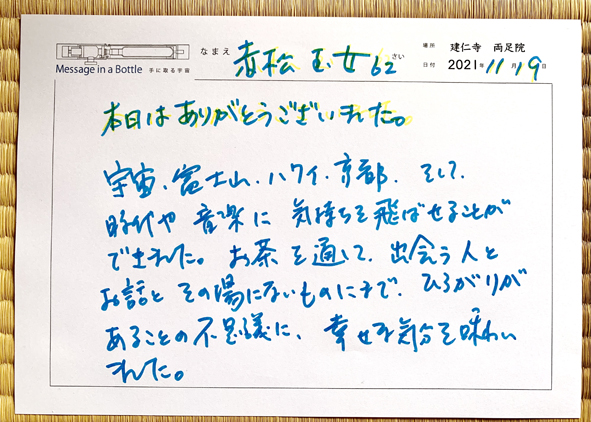 Message in a Bottle 手に取る宇宙
なまえ 赤松 玉女 62 さい
場所 建仁寺 両足院
日付 2021年 11月 19日
本日はありがとうございました。
宇宙、富士山、ハワイ、京都、そして
時代や音楽に気持ちを飛ばせることが
できました。お茶を通して、出会う人と
お話とその場にないものにまで、ひろがりが
あることの不思議に、幸せな気分を味わい
ました。